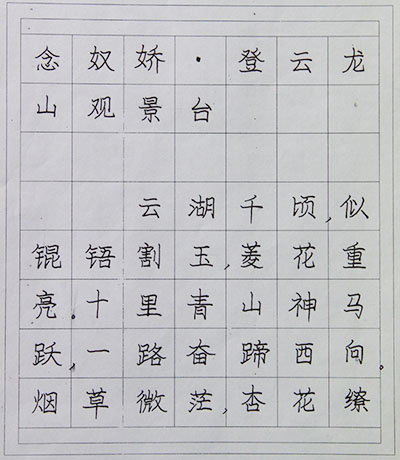 念奴娇·登云龙
山观景台
云湖千顷,似
锟铻割玉,菱花重
亮。十里青山神马
跃,一路奋蹄西向。
烟草微茫,杏花缭